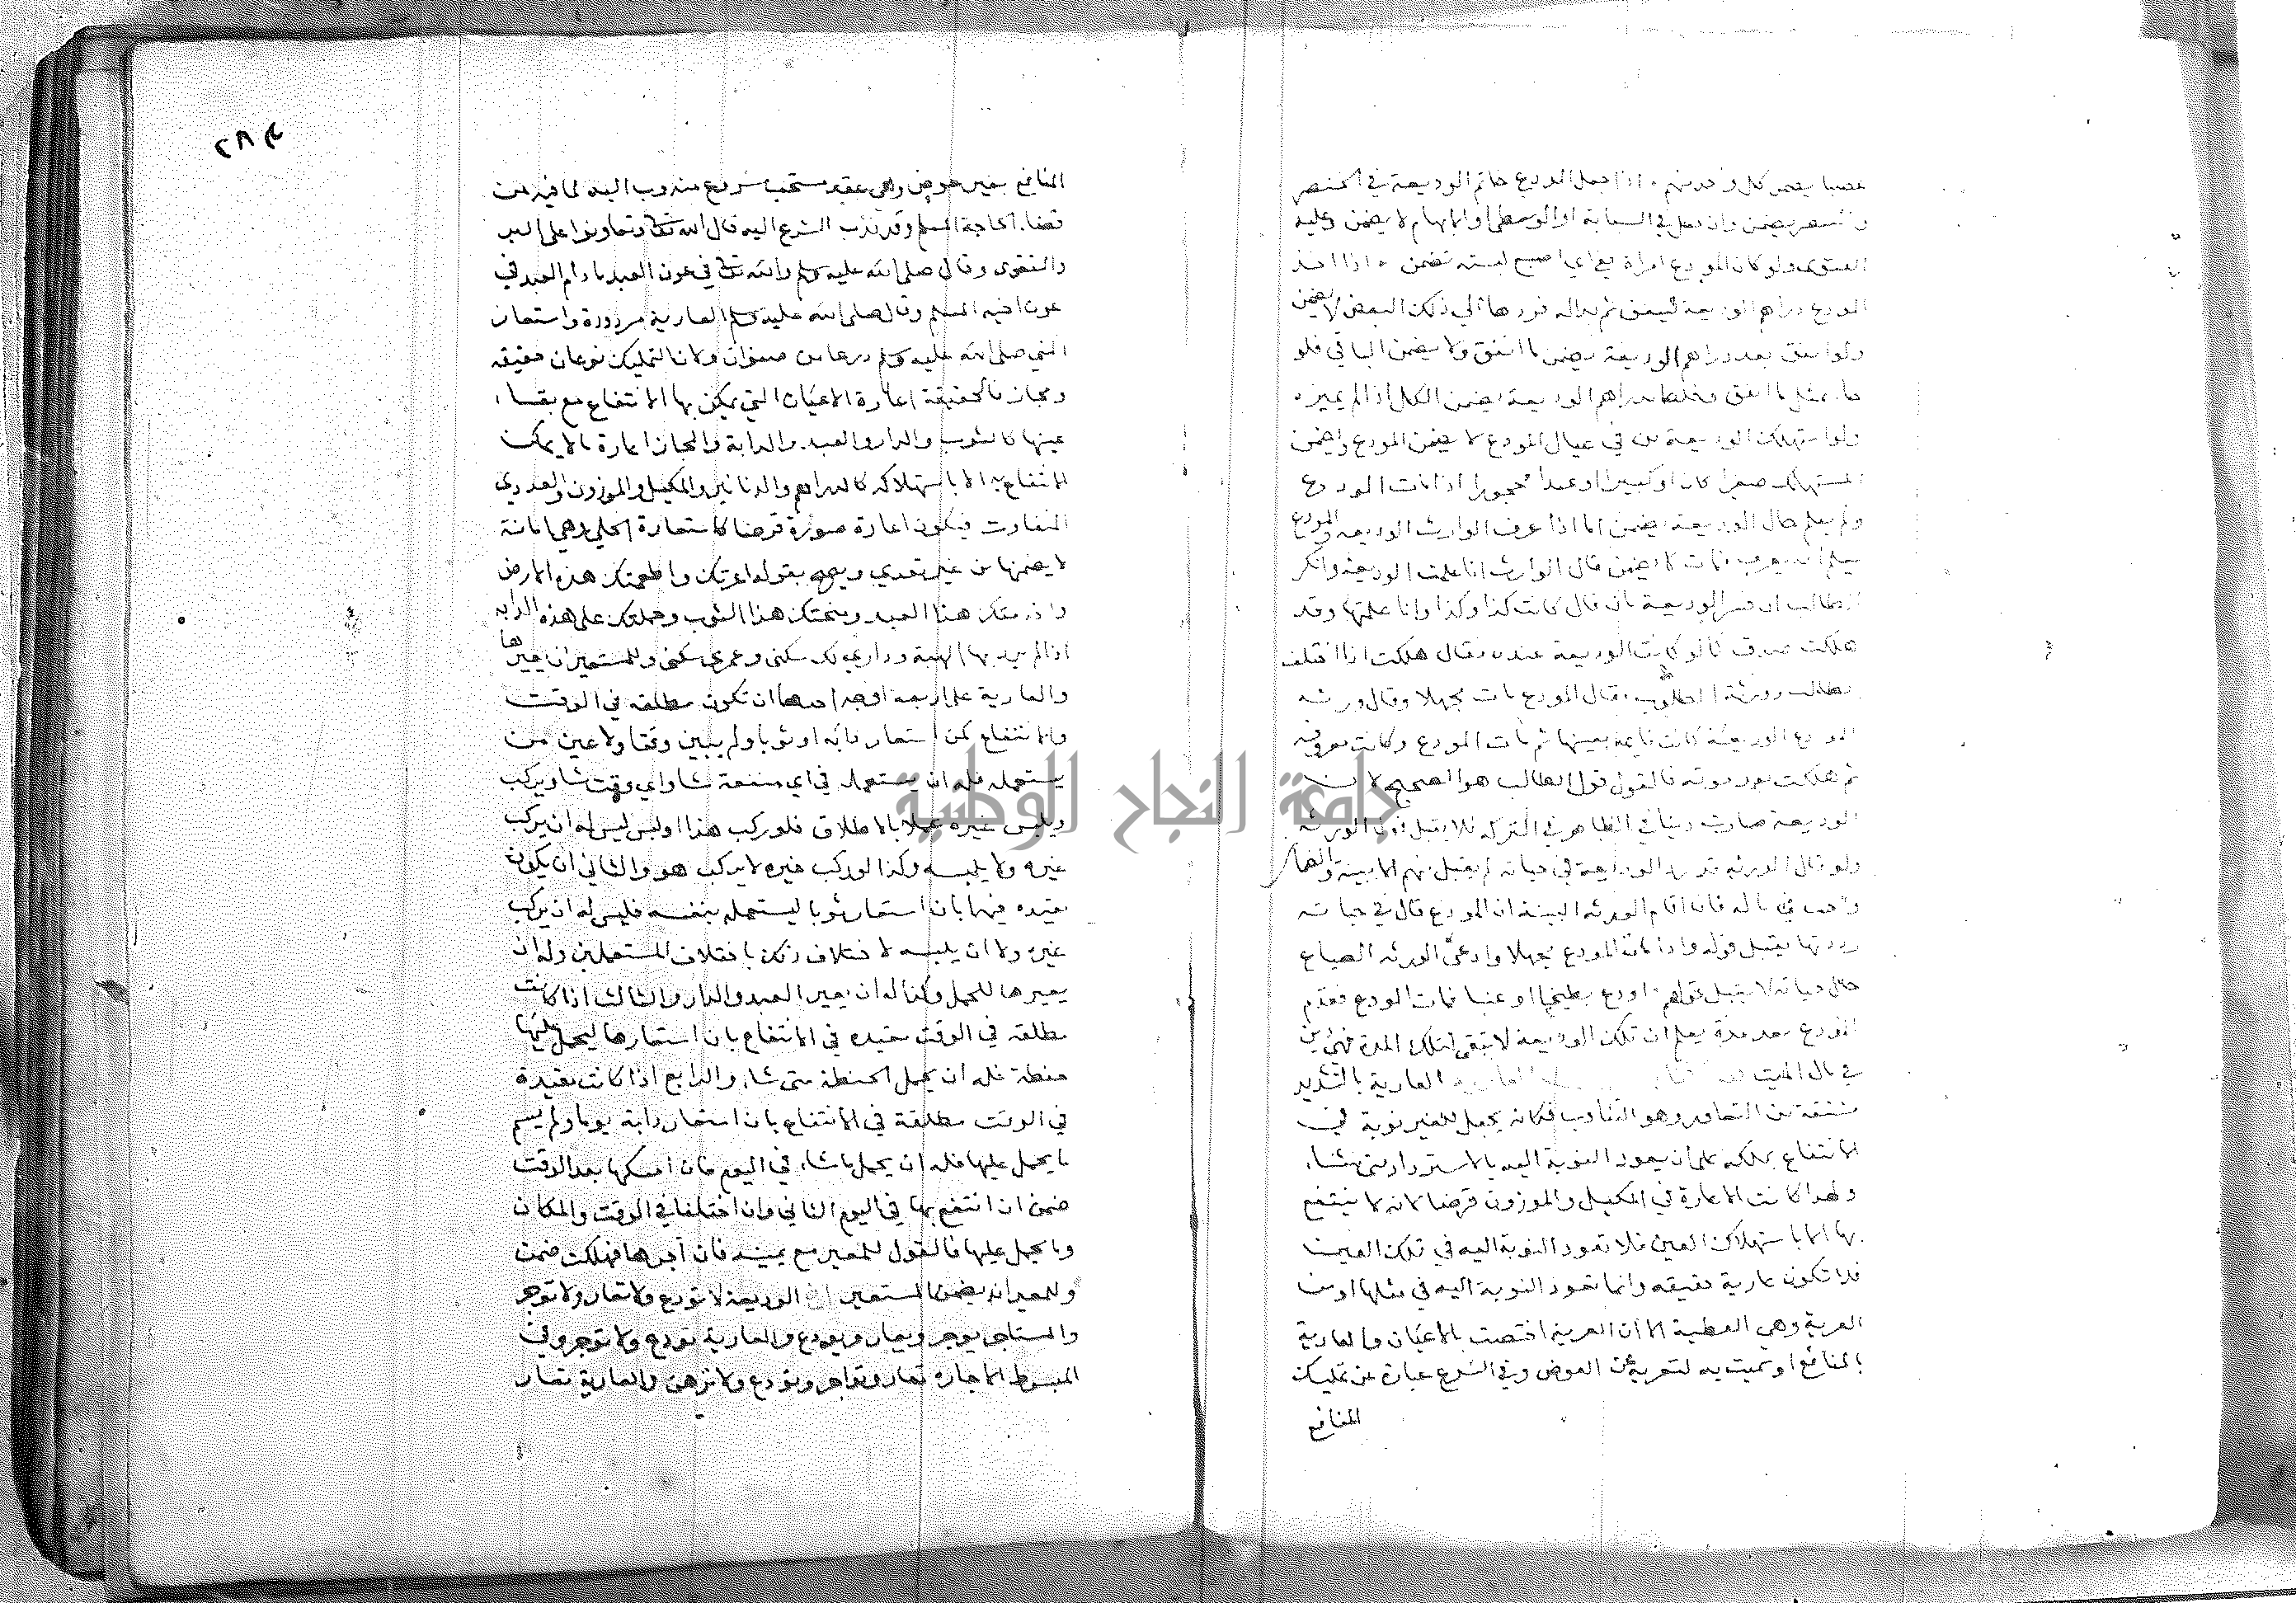 غصبا يضمن كل واحد منهم • اذا جعل المودع خاتم الوديعة في الخنصر
والبنصر يضمن وان جعل في السبابة او الوسطى او الابهام لا يضمن وعليه
الفتوى ولو كان المودع امراة في اي اصبع لبسته تضمن • اذا اخذ
المودع دراهم الوديعة لينفق ثم بداله فردها الي ذلك البعض لا يضمن
ولو انفق بعد دراهم الوديعة يضمن ما انفق ولا يضمن الباقي فلو
جا بمثل ما انفق وخلطه بدراهم الوديعة يضمن الكل اذا لم يميزه
ولو استهلك الوديعة من في عيال المودع لا يضمن المودع ويضمن
المستهلك صغيرا كان او كبيرا او عبدا محجورا اذا مات المودع
ولم يعلم حال الوديعة يضمن اما اذا عرف الوارث الوديعه والمودع
يعلم انه يعرف فمات لا يضمن قال الوارث انا علمت الوديعة وانكر
الطالب ان فسر الوديعة بان قال كانت كذا وكذا وانا علمتها وقد
هلكت صدق كما لو كانت الوديعة عنده فقال هلكت اذا اختلف
الطالب وورثة المطلوب فقال المودع مات مجهلا وقال ورثته
المودع الوديعة كانت قايمة بعينها ثم مات المودع وكانت معروفه
ثم هلكت بعد موته فالقول قول الطالب هو الصحيح لان
الوديعة صارت دينا في الظاهر في التركه فلا يقبل قول الورثه
ولو قال الورثه قد رد الوديعة في حياته لم يقبل منهم الا ببينة والضمان
واجب في ماله فان اقام الورثه البينة ان المودع قال في حياته
رددتها يقبل قوله واذا مات المودع مجهلا وادعى الورثه الضياع
حال حياته لا يقبل قولهم • اودع بطيخا او عنبا فمات المودع فقدم
المودع بعد مدة يعلم ان تلك الوديعة لا تبقى لتلك المدة فهي دين
في مال الميت العارية بالتشديد
مشتقة من التعاور وهو التناوب فكانه يجعل للغير نوبة في
الانتفاع بملكه على ان يعود النوبة اليه بالاسترداد متى شاء
ولهذا كانت الاعارة في المكيل والموزون قرضا لانه لا ينتفع
بها الا باستهلاك العين فلا تعود النوبة اليه في تلك العين
فلا تكون عارية حقيقه وانما تعود النوبة اليه في مثلها او من
العرية وهي العطية الا ان العرية اختصت بالاعيان والعارية
بالمنافع او سميت به لتعريه عن العوض وفي الشرع عبارة عن تمليك
المنافع
٢٨٣
المنافع بغير عوض وهي عقد مستحب شرع مندوب اليه لما فيه من
قضاء الحاجة المسلم وقد ندب الشرع اليه قال الله تعالى وتعاونوا على البر
والتقوى وقال صلى الله عليه وسلم والله تعالى في عون العبد ما دام العبد في
عون اخيه المسلم وقال صلى الله عليه وسلم العارية مردودة واستعار
النبي صلى الله عليه وسلم درعا من صفوان ولان التمليك نوعان حقيقه
ومجاز فالحقيقة اعارة الاعيان التي يمكن بها الانتفاع مع بقاء
عينها كالثوب والدار والعبد والدابة والمجاز اعارة ما لا يمكن
الانتفاع به الا باستهلاكه كالدراهم والدنانير والمكيل والموزون والعددي
المتفاوت فيكون اعارة صورة قرضا كاستعارة الحلي وهي امانة
لا يضمنها من غير تعدي ويصح بقوله اعرتك واطعمتك هذه الارض
واخدمتك هذا العبد ومنحتك هذا الثوب وحملتك على هذه الدابه
اذا لم يرد بها الهبة وداري لك سكنى وعمري سكنى وللمستعير ان يعيرها
والعارية على اربعه اوجه احدها ان تكون مطلقه في الوقت
والانتفاع كمن استعار دابه او ثوبا ولم يبين وقتا ولا عين من
يستعمله فله ان يستعمله في اي منفعة شا واي وقت شا ويركب
ويلبس غيره عملا بالاطلاق فلو ركب هذا او لبس ليس له ان يركب
غيره ولا يلبسه وكذا لو ركب غيره لا يركب هو والثاني ان يكون
مقيده فيها بان استعار ثوبا ليستعمله بنفسه فليس له ان يركب
غيره ولا ان يلبسه لاختلاف ذلك باختلاف المستعملين وله ان
يعيرها للحمل وكذا له ان يعير العبد والدار والثالث اذا كانت
مطلقه في الوقت مقيده في الانتفاع بان استعارها ليحمل عليها
حنطة فله ان يحمل الحنطة متى شاء والرابع اذا كانت مقيدة
في الوقت مطلقة في الانتفاع بان استعار دابة يوما ولم يسم
ما يحمل عليها فله ان يحمل ما شاء في اليوم فان امسكها بعد الوقت
ضمن ان انتفع بها في اليوم الثاني وان اختلفا في الوقت والمكان
وما يحمل عليها فالقول للمعير مع يمينه فان آجرها فهلكت ضمن
وللمعير ان يضمن المستعير الوديعة لا تودع ولا تعار ولا توجر
والمستاجر يوجر ويعار ويودع والعارية تودع ولا توجر وفي
المبسوط الاجارة تعار وتواجر وتودع ولا ترهن والعارية تعار
جامعة النجاح الوطنية